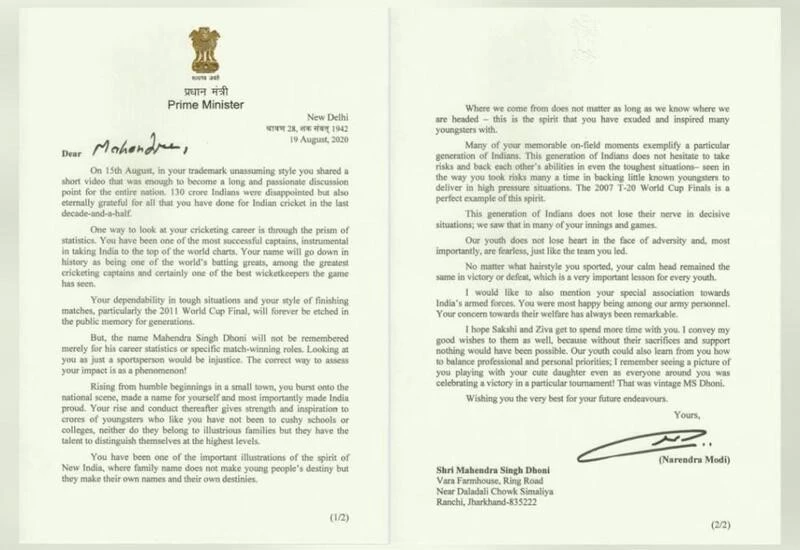 सत्यमेव जयते
प्रधान मंत्री
Prime Minister
New Delhi
श्रावण 28, शक संवत् 1942
19 August, 2020
Dear Mahendra,
On 15th August, in your trademark unassuming style you shared a
short video that was enough to become a long and passionate discussion
point for the entire nation. 130 crore Indians were disappointed but also
eternally grateful for all that you have done for Indian cricket in the last
decade-and-a-half.
One way to look at your cricketing career is through the prism of
statistics. You have been one of the most successful captains, instrumental
in taking India to the top of the world charts. Your name will go down in
history as being one of the world's batting greats, among the greatest
cricketing captains and certainly one of the best wicketkeepers the game
has seen.
Your dependability in tough situations and your style of finishing
matches, particularly the 2011 World Cup Final, will forever be etched in
the public memory for generations.
But, the name Mahendra Singh Dhoni will not be remembered
merely for his career statistics or specific match-winning roles. Looking at
you as just a sportsperson would be injustice. The correct way to assess
your impact is as a phenomenon!
Rising from humble beginnings in a small town, you burst onto the
national scene, made a name for yourself and most importantly made India
proud. Your rise and conduct thereafter gives strength and inspiration to
crores of youngsters who like you have not been to cushy schools or
colleges, neither do they belong to illustrious families but they have the
talent to distinguish themselves at the highest levels.
You have been one of the important illustrations of the spirit of
New India, where family name does not make young people's destiny but
they make their own names and their own destinies.
(1/2)
Where we come from does not matter as long as we know where we
are headed – this is the spirit that you have exuded and inspired many
youngsters with.
Many of your memorable on-field moments exemplify a particular
generation of Indians. This generation of Indians does not hesitate to take
risks and back each other's abilities in even the toughest situations– seen in
the way you took risks many a time in backing little known youngsters to
deliver in high pressure situations. The 2007 T-20 World Cup Finals is a
perfect example of this spirit.
This generation of Indians does not lose their nerve in decisive
situations; we saw that in many of your innings and games.
Our youth does not lose heart in the face of adversity and, most
importantly, are fearless, just like the team you led.
No matter what hairstyle you sported, your calm head remained the
same in victory or defeat, which is a very important lesson for every youth.
I would like to also mention your special association towards
India's armed forces. You were most happy being among our army personnel.
Your concern towards their welfare has always been remarkable.
I hope Sakshi and Ziva get to spend more time with you. I convey my
good wishes to them as well, because without their sacrifices and support
nothing would have been possible. Our youth could also learn from you how
to balance professional and personal priorities; I remember seeing a picture of
you playing with your cute daughter even as everyone around you was
celebrating a victory in a particular tournament! That was vintage MS Dhoni.
Wishing you the very best for your future endeavours.
Yours,
(Narendra Modi)
Shri Mahendra Singh Dhoni
Vara Farmhouse, Ring Road
Near Daladali Chowk Simaliya
Ranchi, Jharkhand-835222
(2/2)